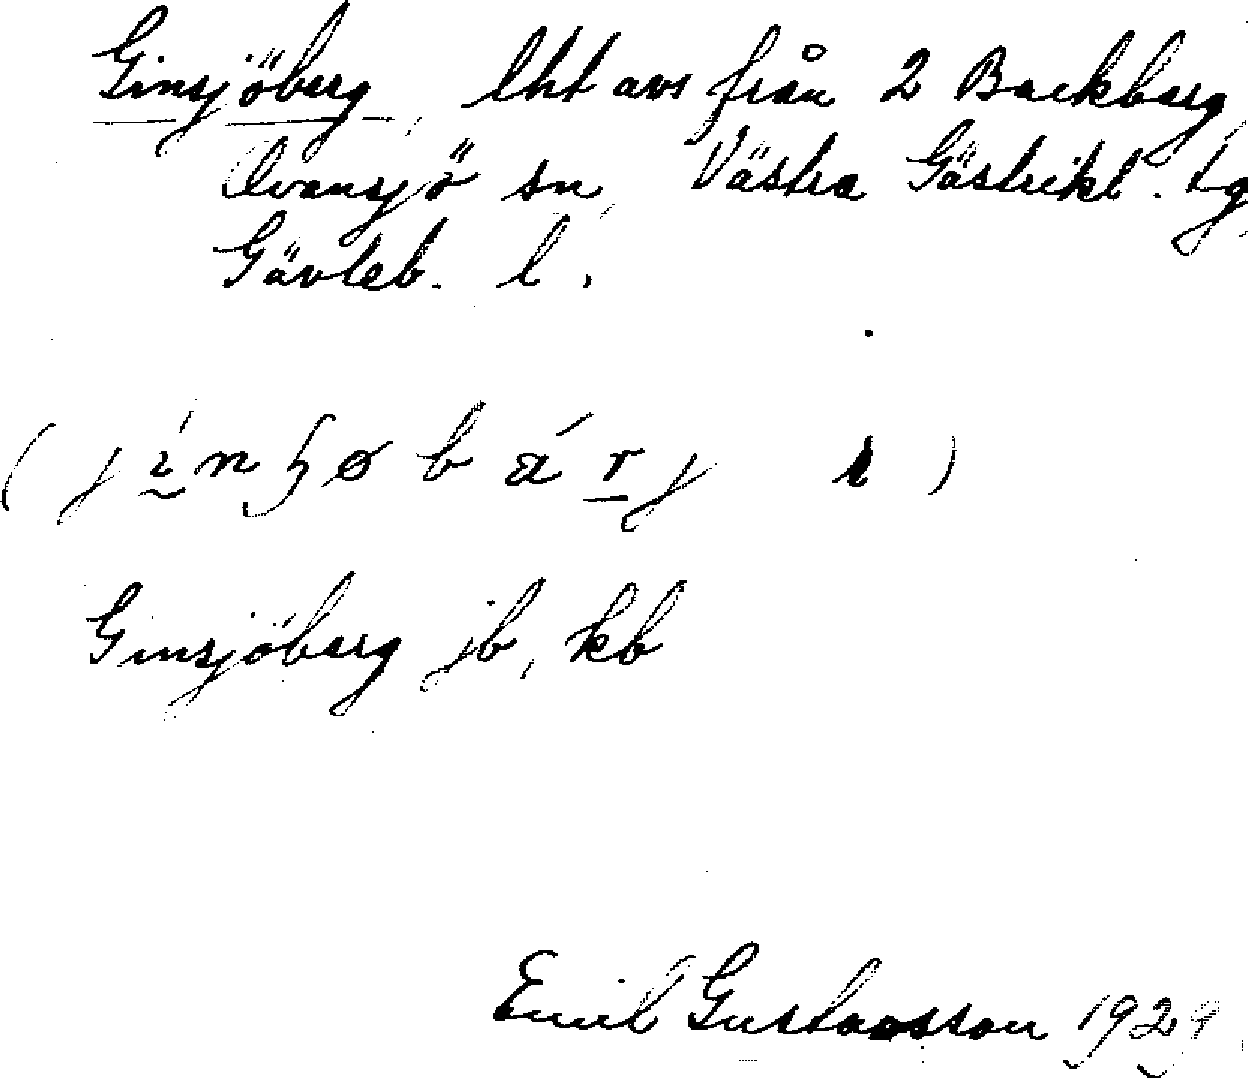 Ginsjöberg, lht avs från 2 Backberg,
Ovansjö sn, Västra Gästrikl. tg,
Gävleb. l.
Ginsjöberg jb, kb
Emil Gustavsson 1929